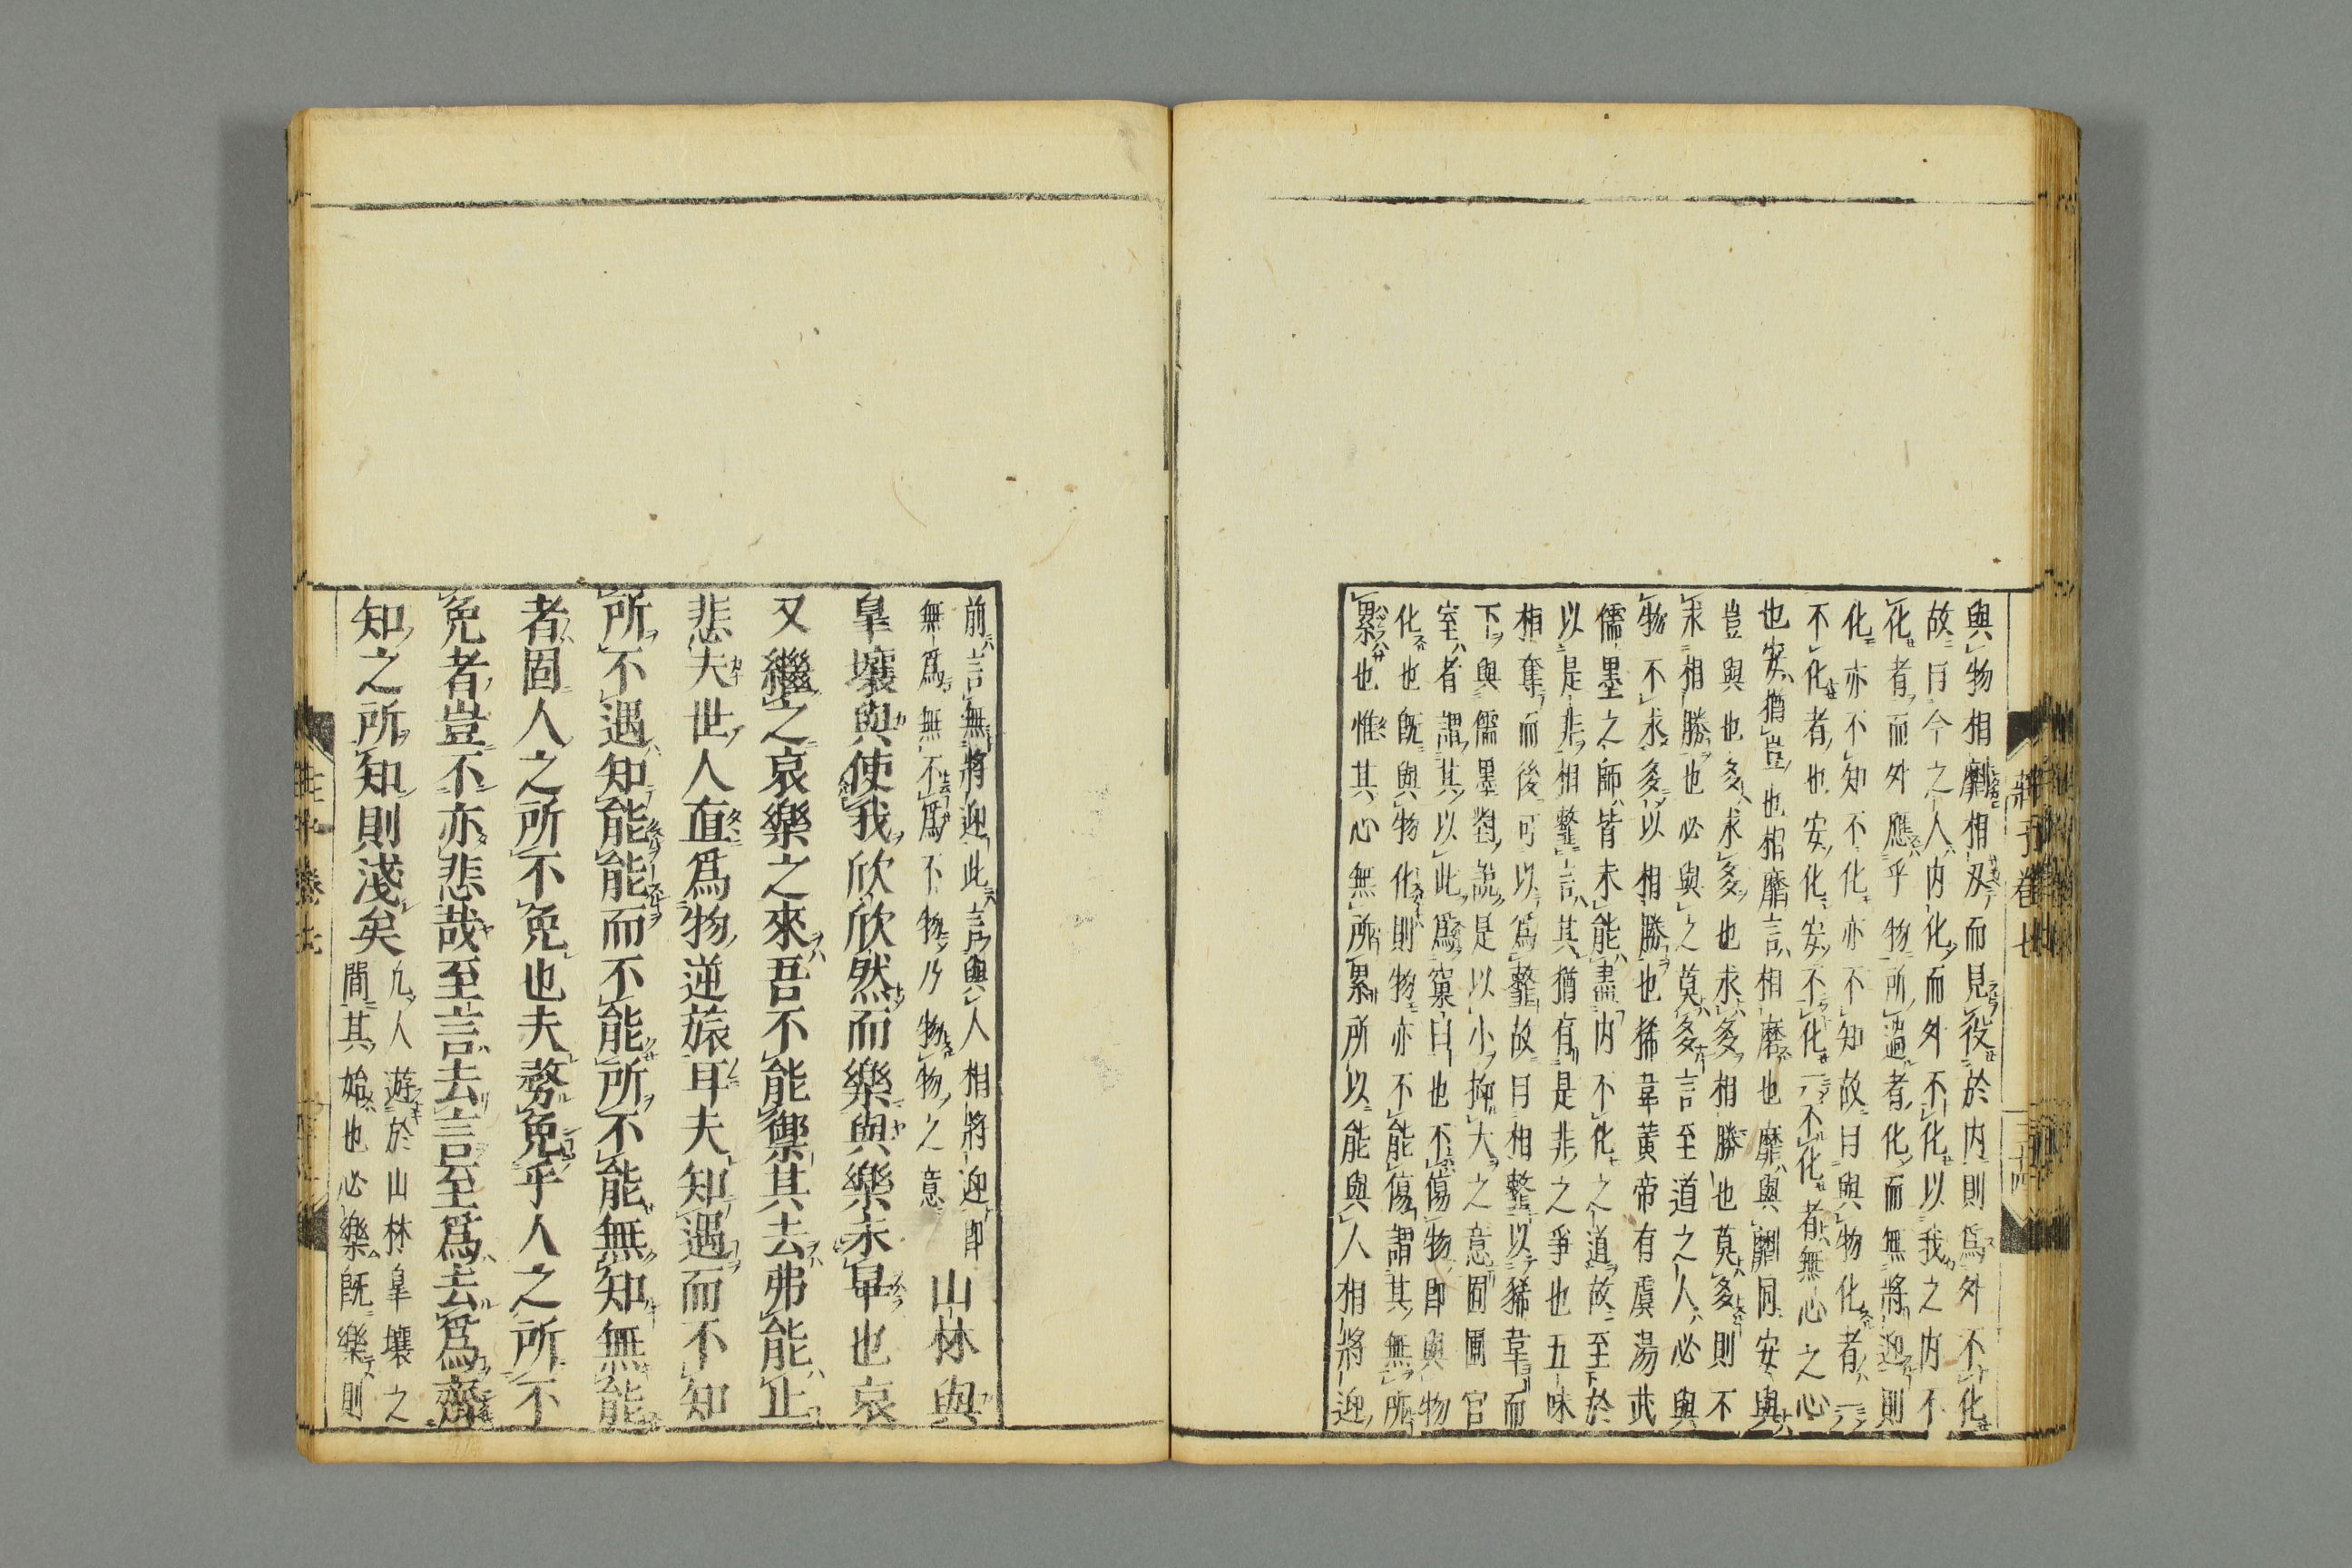 莊子卷七
三十四
與物相劘相刃而見役於内則爲外不化
故曰今之人内化而外不化以我之内不
化者而外應乎物所過者化而無將迎則
化亦不知不化亦不知故曰與物化者一
不化者也安化安不化一不化者無心之心
也安猶豈也相靡言相磨也靡與劘同安與
豈與也多求多也求多相勝也莫多則不
求相勝也必與之莫多言至道之人必與
物不求多以相勝也狶韋黃帝有虞湯武
儒墨之師皆未能盡内不化之道故至於
以是非相䪠言其猶有是非之爭也五味
相奪而後可以爲䪠故曰相䪠以狶韋而
下與儒墨對說是以小抑大之意囿圃宮
室者謂其以此爲窠臼也不傷物即與物
化也既與物化則物亦不能傷謂其無所
累也惟其心無所累所以能與人相將迎
前言無將迎此言與人相將迎即
無爲無不爲不物乃物物之意
山林與
皐壤與使我欣欣然而樂與樂未畢也哀
又繼之哀樂之來吾不能禦其去弗能止
悲夫世人直爲物逆旅耳夫知遇而不知
所不遇知能能而不能所不能無知無能
者固人之所不免也夫務免乎人之所不
免者豈不亦悲哉至言去言至爲去爲齊
知之所知則淺矣
凢人遊於山林皐壤之
間其始也必樂既樂則